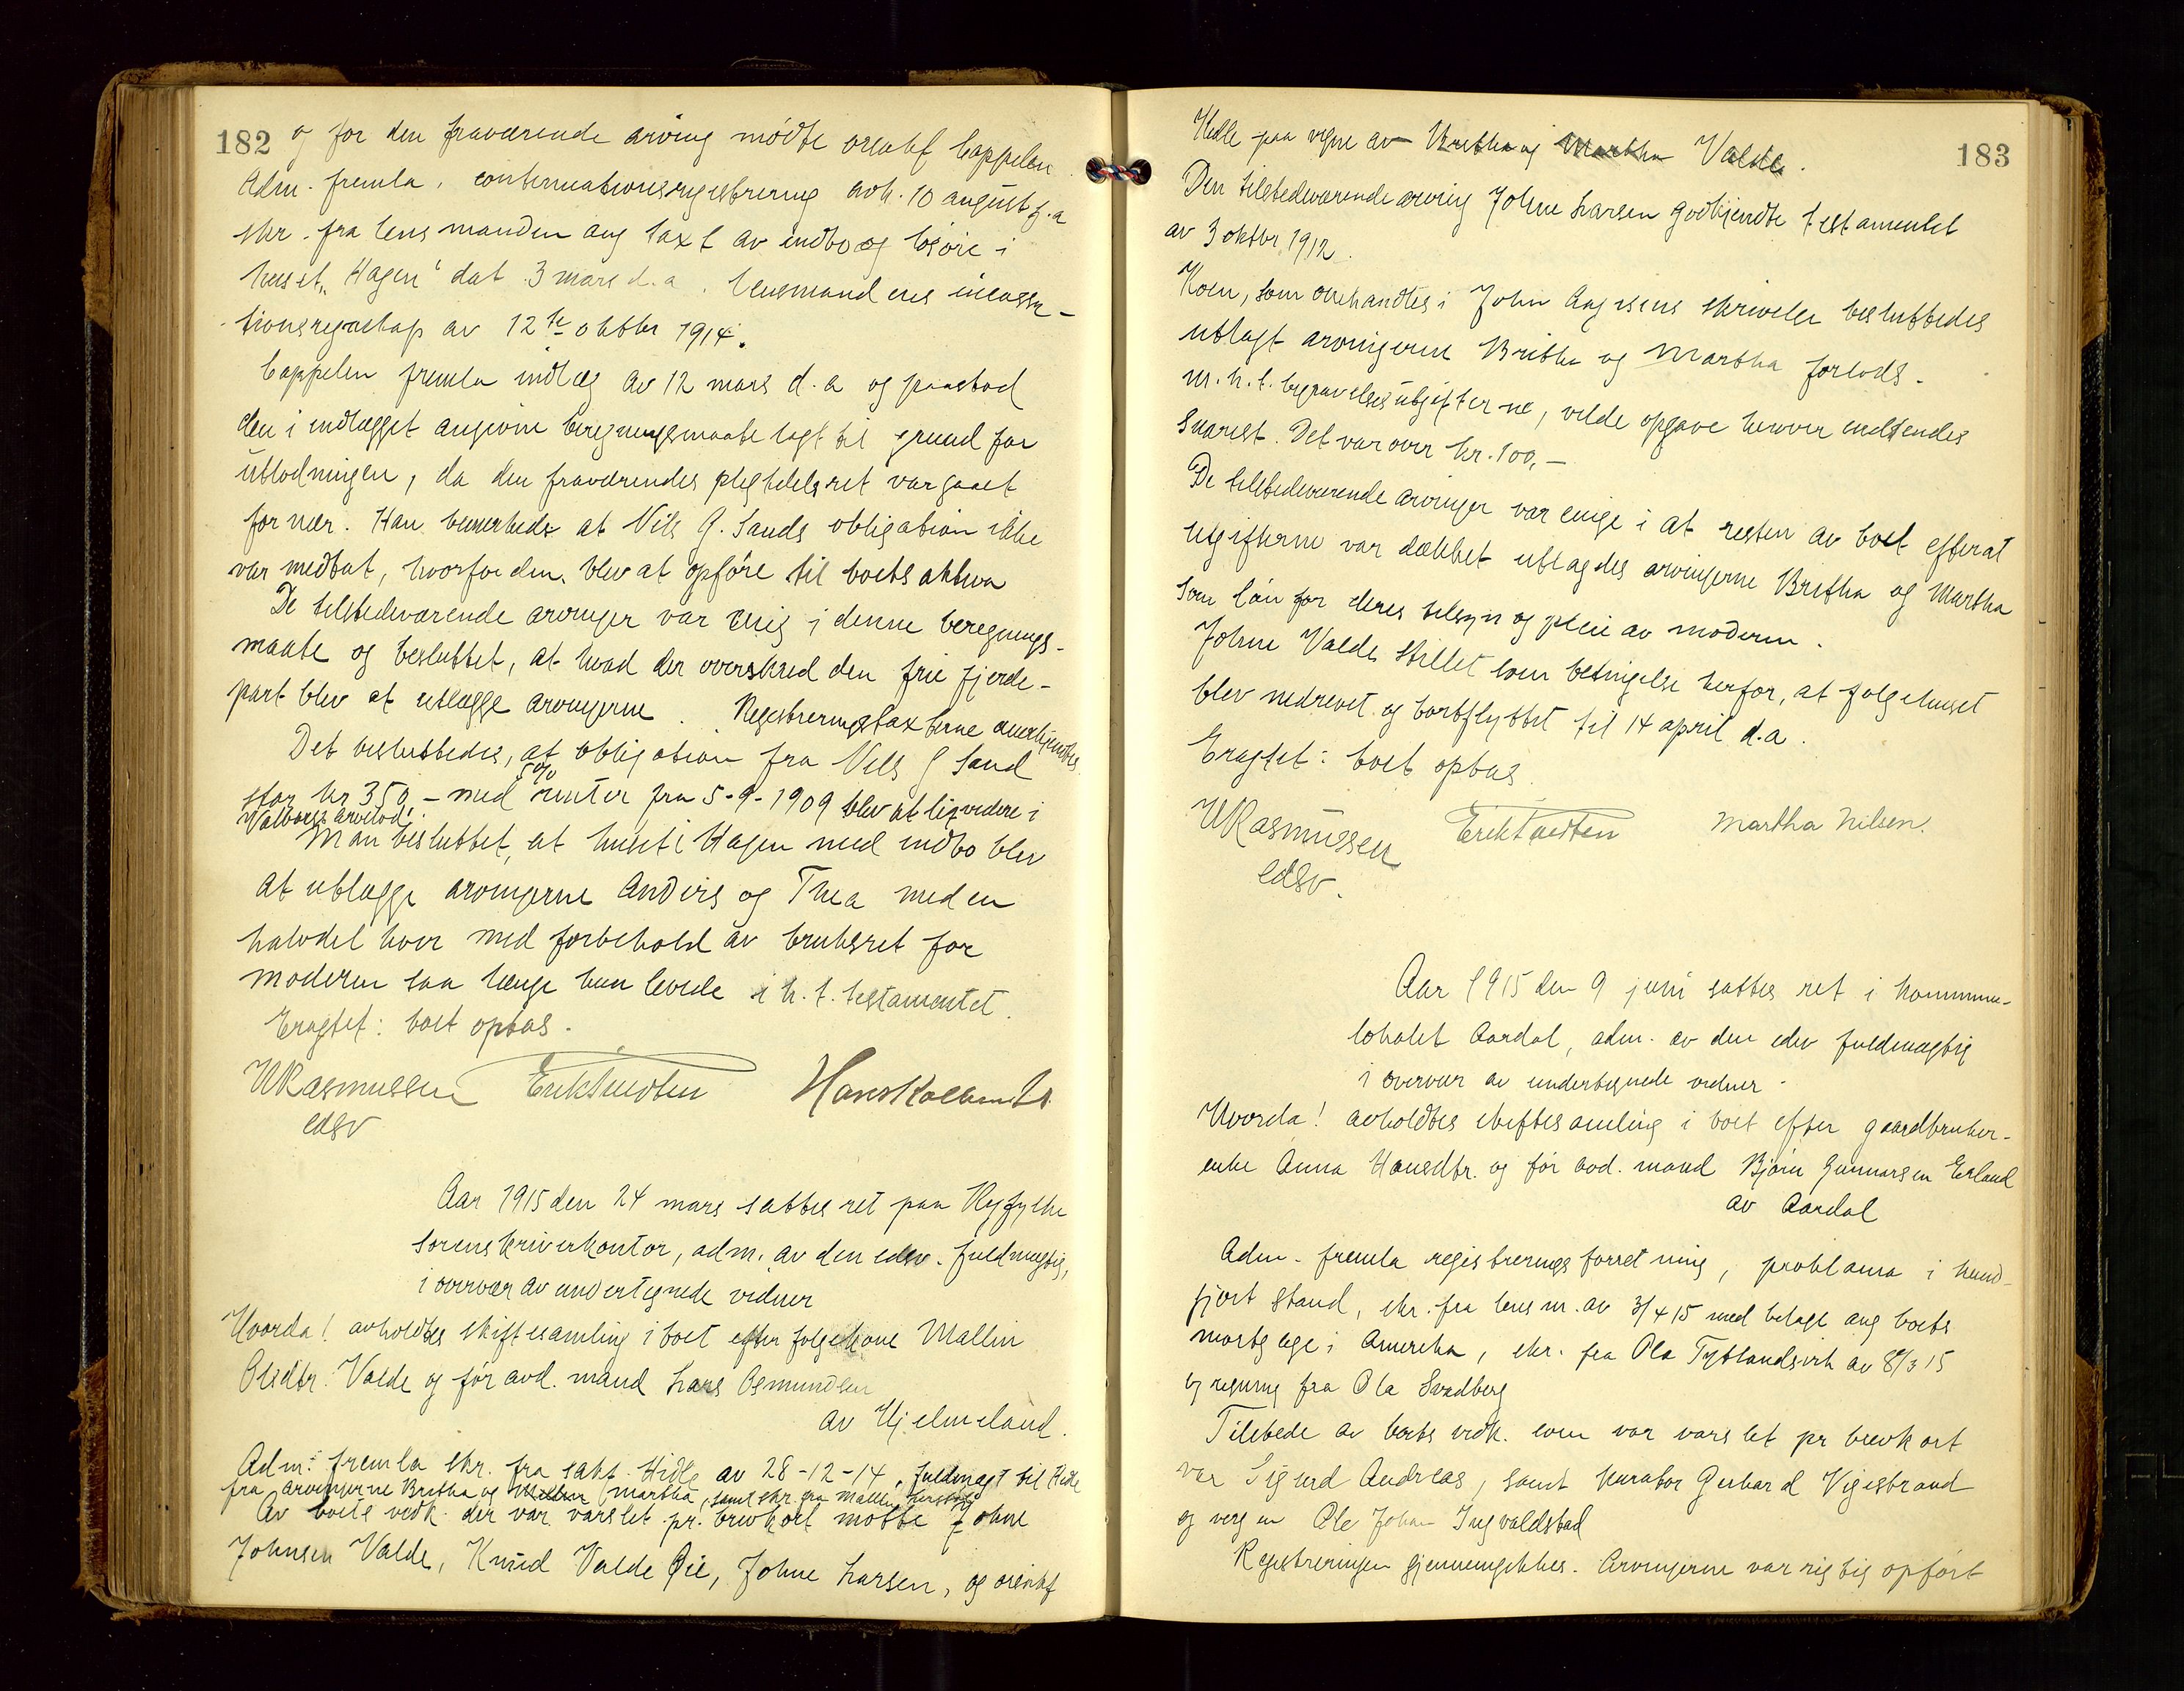 182 og for den fraværende arving mødte ovsakf Cappelen.
Adm. fremla, conternationsregistrering avh. 10 august f.a
skr. fra lensmanden ang taxt av indbo og løsøre i
huset "Hagen" dat. 3 mars d.a. Lensmandens incassa-
tionsregnskap av 12te oktbr 1914.
Cappelen fremla indlæg av 12 mars d.a og paastod
den i indlægget angivne beregningsmaate lagt til grund for
utlodningen, da den fraværendes pligtdelsret var gaaet
for nær. Han bemerkede at Nils G. Sands obligation ikke
var medtat, hvorfor den blev at opføre til boets aktiva
De tilstedeværende arvinger var enig i denne beregnings-
maate og besluttet, at hvad der overskred den frie fjerde-
part blev at utlægge arvingerne. Registreringstaxterne anerkjendtes.
Det besluttedes, at obligation fra Nils G Sand
stor kr 350,- med 5% renter fra 5-9-1909 blev at liqvidere i
Valborgs arvelod.
Man besluttet, at huset i Hagen med indbo blev
at utlægge arvingerne Anders og Thea med en
halvdel hver med forbehold av bruksret for
moderen saa længe hun levede i h. t. testamentet.
Eragtet: boet optas.
W Rasmussen Erik Tveiten Hans Kolbeinstv.
edsv
Aar 1915 den 24 mars sattes ret paa Ryfylke
sorenskriverkontor, adm. av den edsv. fuldmægtig,
i overvær av undertegnede vidner
Hvorda! avholdtes skiftesamling i boet efter følgekone Mallin
Olsdtr. Valde og før avd. mand Lars Osmundsen
av Hjelmeland.
Adm: fremla skr. fra sakf. Hidle av 28-12-14, fuldmagt til Hidle
fra arvingerne Britha og Martha, samt skr. fra Mallin
Av boets vedk. der var varslet pr. brevkort møtte Johne
Johnsen Valde, Knud Valde Øie, Johne Larsen, og ovsakf
183
Hidle paa vegne av Britha og Martha Valde.
Den tilstedeværende arving Johne Larsen godkjendte testamentet
av 3 oktbr 1912.
Koen, som omhandles i John Aagesens skrivelse besluttedes
utlagt arvingerne Britha og Martha forlods.
m. h. t. begravelsesutgifterne, vilde opgave herover indsendes
snarest. Det var over kr. 100,-
De tilstedeværende arvinger var enige i at resten av boet efterat
utgifterne var dækket utlagdes arvingerne Britha og Martha
som løn for deres tilsyn og pleie av moderen.
Johne Valde stillet som betingelse herfor, at følgehuset
blev nedrevet og bortflyttet til 14 april d.a.
Eragtet: boet optas.
W Rasmussen Erik Tveiten Martha Nilsen.
edsv.
Aar 1915 den 9 juni sattes ret i kommune-
lokalet Aardal, adm. av den edsv fuldmægtig
i overvær av undertegnede vidner.
Hvorda! avholdtes skiftesamling i boet efter gaardbruker-
enke Anna Hansdtr. og før avd. mand Bjørn Gunnarsen Erland
av Aardal
Adm. fremla registreringsforretning, proklama i kund-
gjort stand, skr. fra lensm. av 3/4 15 med bilage ang boets
mortgage i Amerika, skr. fra Ola Tytlandsvik av 8/3 15
og regning fra Ola Svadberg
Tilstede av boets vedk. som var varslet pr brevkort
var Sigurd Andreas, samt kurator Gerhard Vigestrand
og vergen Ole Johan Ingvaldstad
Registreringen gjennemgikkes. Arvingerne var rigtig opført